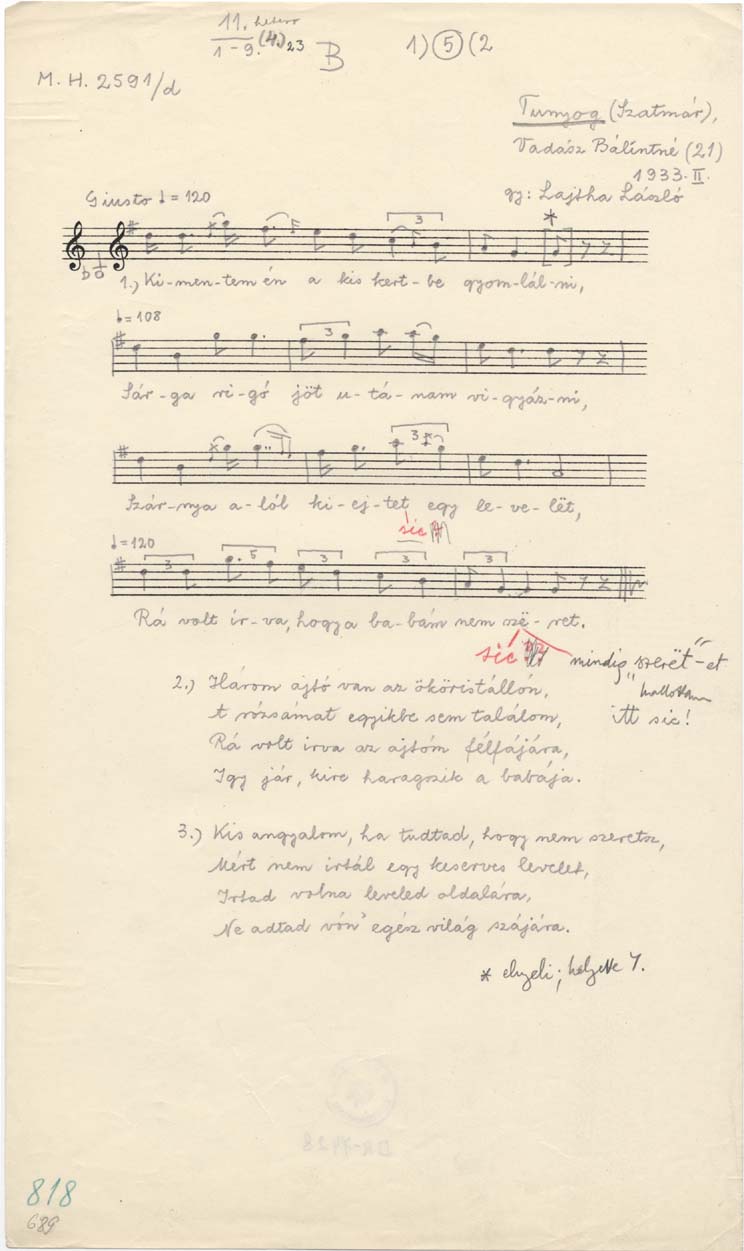 11. heterr
1-9. (4.) 23 B 1) 5 (2
M. H. 2591/d
Tunyog (Szatmár),
Vadász Bálintné (21)
1933. II.
gy: Lajtha László
Giusto = 120 *
3
1.) Ki-men-tem én a kis kert-be gyom-lál-ni,
= 108
3
Sár-ga ri-gó jöt u-tá-nam vi-gyáz-ni,
3
Szár-nya a-lól ki-ej-tet egy le-ve-lët,
sic
= 120
3 5 3 3 3
Rá volt ir-va, hogy a ba-bám nem szë-ret.
sic mindig "szerët"-et
hallottam
itt sic!
2.) Három ajtó van az ököristállón,
A rózsámat egyikbe sem találom,
Rá volt irva az ajtóm félfájára,
Igy jár, kire haragszik a babája.
3.) Kis angyalom, ha tudtad, hogy nem szeretsz,
Mért nem irtál egy keserves levelet,
Irtad volna leveled oldalára,
Ne adtad vón' egész világ szájára.
* elnyeli; helyette
818
689